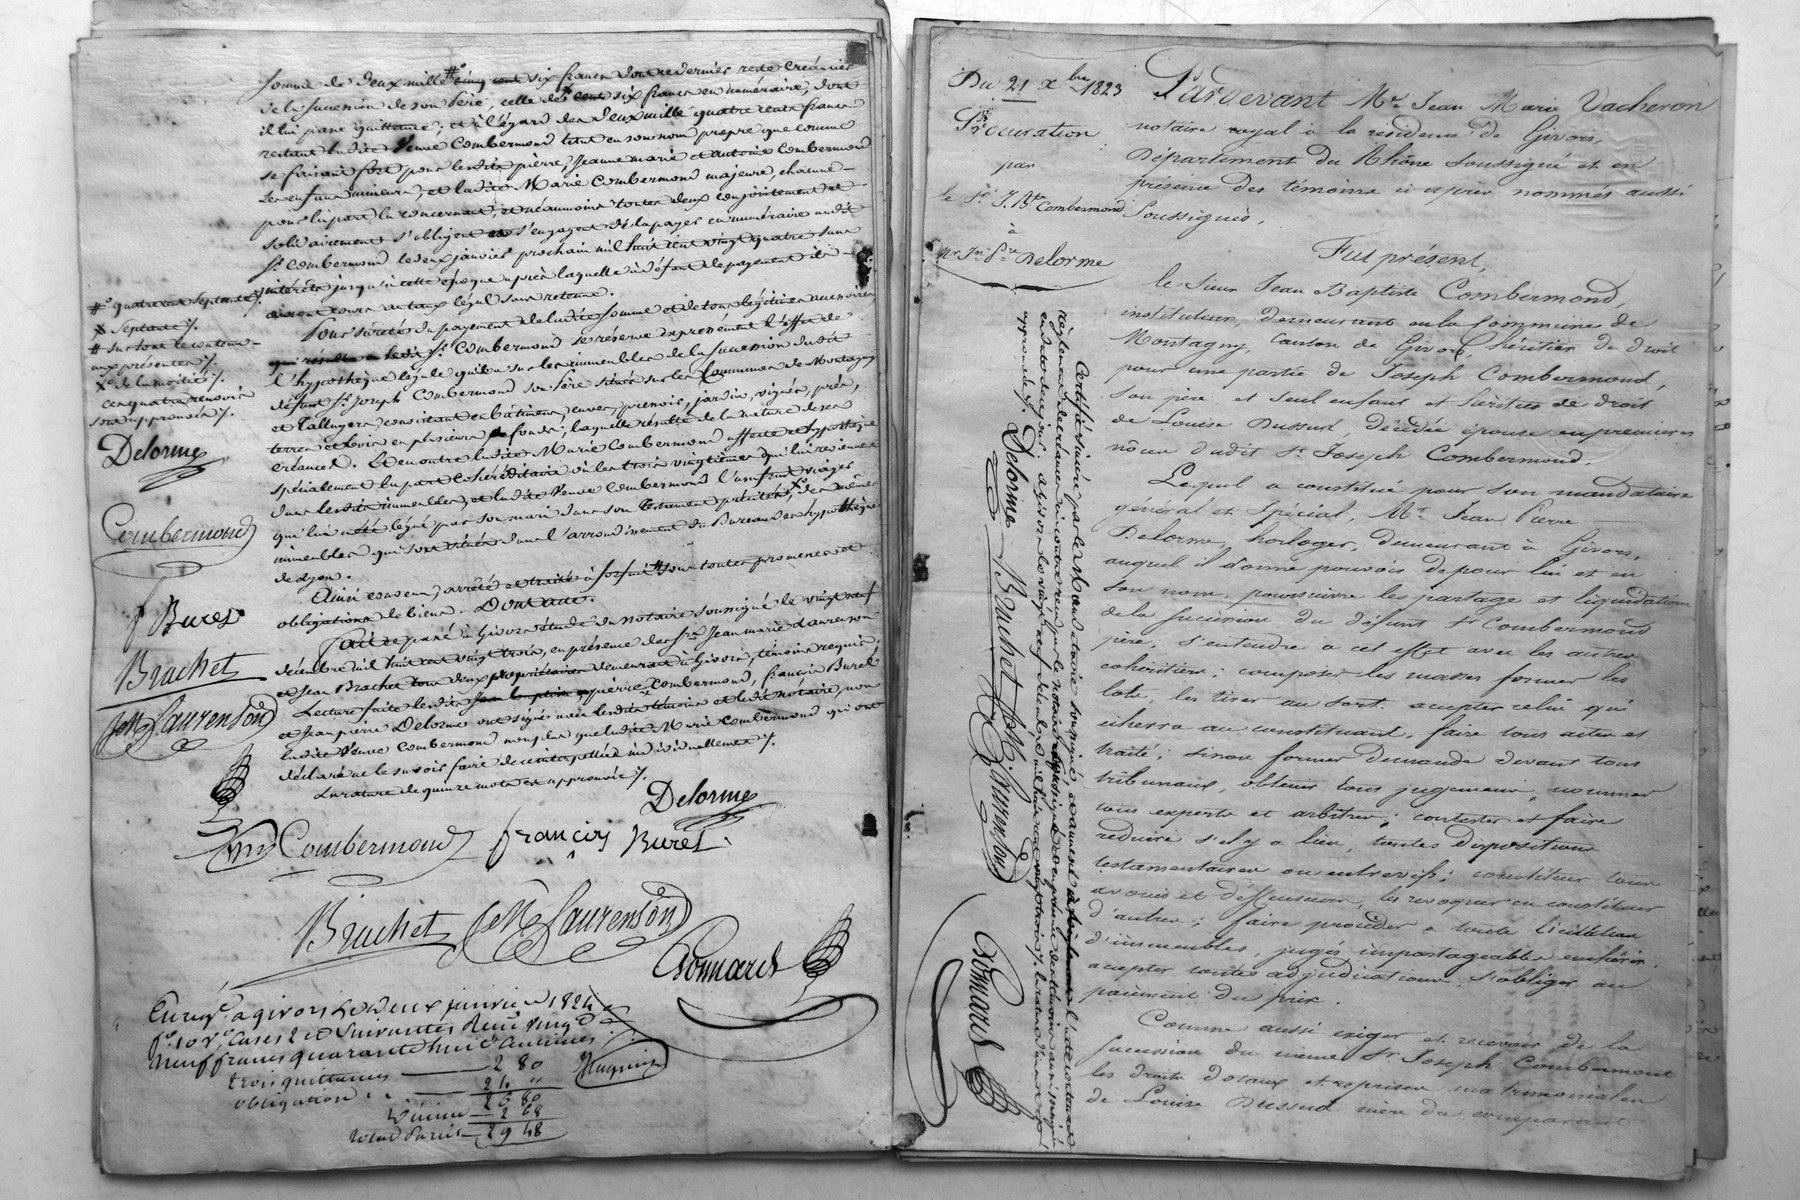 somme de deux mille #° cinq cent six francs dont
de la succession de son père, celle de cent six francs en numéraire, dont
il lui passe quittance; et à l'égard des deux mille quatre cents francs
restant ladite Veuve Combermond tant en son nom propre que comme
se faisant fort pour lesdits pierre, Jeanne marie et antoine Combermond
ses enfans mineurs, et ladite Marie Combermond majeure, chacune
pour la part la concernant, et néanmoins toutes deux conjointement et
solidairement s'obligent et s'engagent de la payer en numéraire audit
Sr. Combermond le deux janvier prochain mil huit cent vingt quatre sans
intérêts jusqu'à cette époque après laquelle à défaut de payement ils
auront cours au taux légal sans retenue.
Pour sureté du payement de ladite somme et de tous légitimes accessoires
Sr. Combermond se réserve expressément l'effet de
l'hypothèque légale qu'il a sur les immeubles de la succession dudit
défunt Sr. Joseph Combermond son père situés sur les Communes de Montagny
et Talluyers, consistant en bâtimens, cuves, pressoir, jardin, vignes, prés,
terres et bois en plusieurs fonds, laquelle résulte de la nature de ses
créances. Et en outre ladite Marie Combermond affecte et hypothèque
spécialement sa part cohéréditaire ou les trois vingtièmes qui lui reviennent
dans lesdits immeubles, et ladite Veuve Combermond l'usufruit viager
qui lui a été légué par son mari dans son testament précité, des mêmes
immeubles qui sont situés dans l'arrondissement du Bureau des hypothèques
de Lyon.
Ainsi convenu, arrêté et traité à forfait sous toutes promesses et
obligations de biens. Dont acte.
Fait et passé à Givors étude du notaire soussigné le vingt neuf
décembre mil huit cent vingt trois, en présence des Srs. Jean marie Laurenson
et Jean Brachet tous deux propriétaires demeurant à Givors, témoins requis.
Lecture faite lesdits pierre Combermond, françois Buret
et Jean pierre Delorme ont signé avec lesdits témoins et ledit notaire, non
ladite Veuve Combermond non plus que ladite Marie Combermond qui ont
déclaré ne le savoir faire de ce interpellées individuellement ./.
La rature de quinze mots est approuvée ./.
#° quatre cent septante ./.
x septante ./.
# sur tout le contenu
aux présentes ./.
x° de la moitié ./.
ces quatre renvois
sont approuvés ./.
Delorme
Combermond
f Buret
Brachet
JM Laurenson
Delorme
Combermond françois Buret
Brachet JM Laurenson
Bonnard
Enregé. à givors le deux janvier 1824
fo. 10 vo. Cases 2 et Suivantes Reçu vingt
neuf francs quarante huit centimes
trois quittances 2 80
obligation 24 "
26 80
Dixième 2 68
Total 29 48
Du 21 xbre 1823
Procuration
par
le Sr. J. Bte Combermond
à
Mr. Jn. Pre Delorme
Pardevant Me. Jean Marie Vacheron
notaire royal à la résidence de Givors,
Département du Rhône soussigné et en
présence des témoins ci après nommés aussi
soussignés,
Fut présent,
le Sieur Jean Baptiste Combermond,
instituteur, demeurant en la Commune de
Montagny, Canton de Givors, héritier de droit
pour une partie de Joseph Combermond,
son père, et seul enfant et héritier de droit
de Louise Dussud, décédée épouse en premieres
nôces dudit Sr. Joseph Combermond.
Lequel a constitué pour son mandataire
général et spécial, Mr. Jean Pierre
Delorme, horloger, demeurant à Givors,
auquel il donne pouvoir de pour lui et en
son nom, poursuivre les partage et liquidation
de la succession du défunt Sr Combermond
père, s'entendre à cet effet avec les autres
cohéritiers; composer les masses former les
lots, les tirer au sort, accepter celui qui
écherra au constituant, faire tous actes et
traités; sinon former demande devant tous
tribunaux, obtenir tous jugemens, nommer
tous experts et arbitres; contester et faire
réduire s'il y a lieu, toutes dispositions
testamentaires ou entrevifs; constituer tous
avoués et déffenseurs, les révoquer en constituer
d'autres; faire procéder à toute licitation
d'immeubles, jugés impartageables enchérir,
accepter toutes adjudications s'obliger au
paiement du prix.
Comme aussi exiger et recevoir de la
succession du même Sr. Joseph Combermond
les droits dotaux et reprises matrimoniales
de Louise Dussud mère du comparant
Certifié sincère par le Mandataire soussigné
Delorme Brachet JM Laurenson
Bonnard